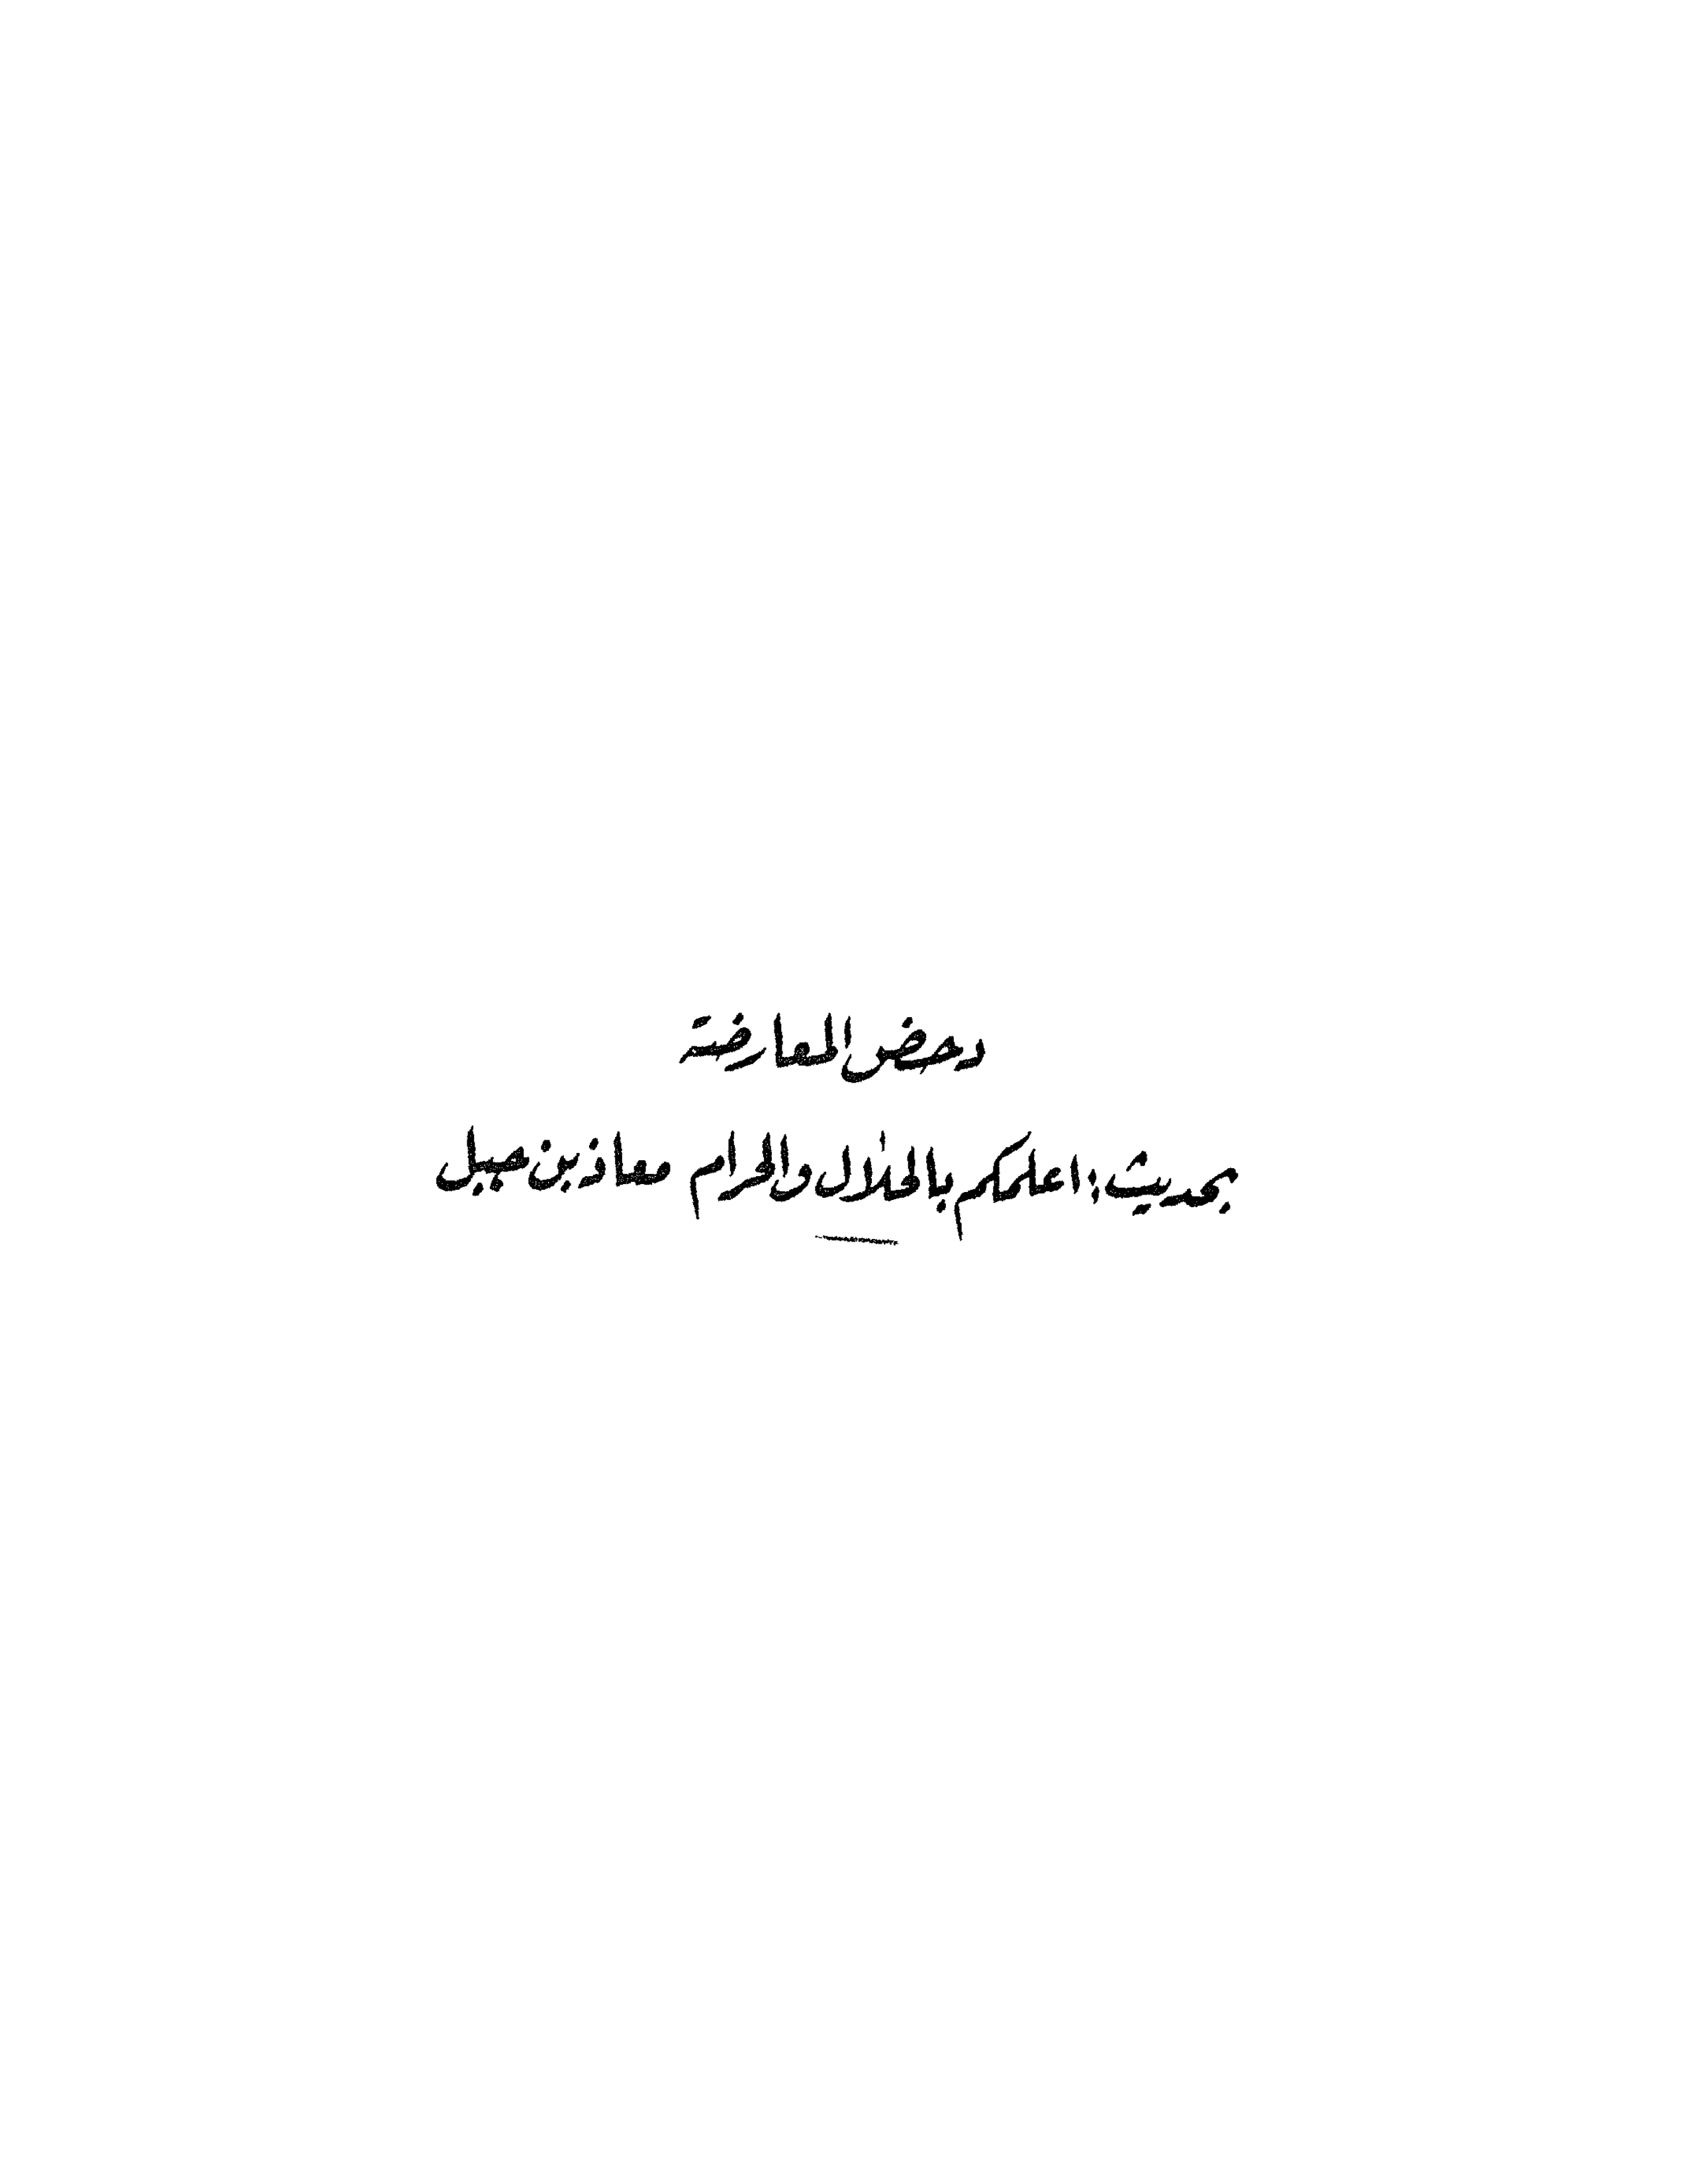 دحض المعارضة
بحديث: اعلمكم بالحلال والحرام معاذ بن جبل